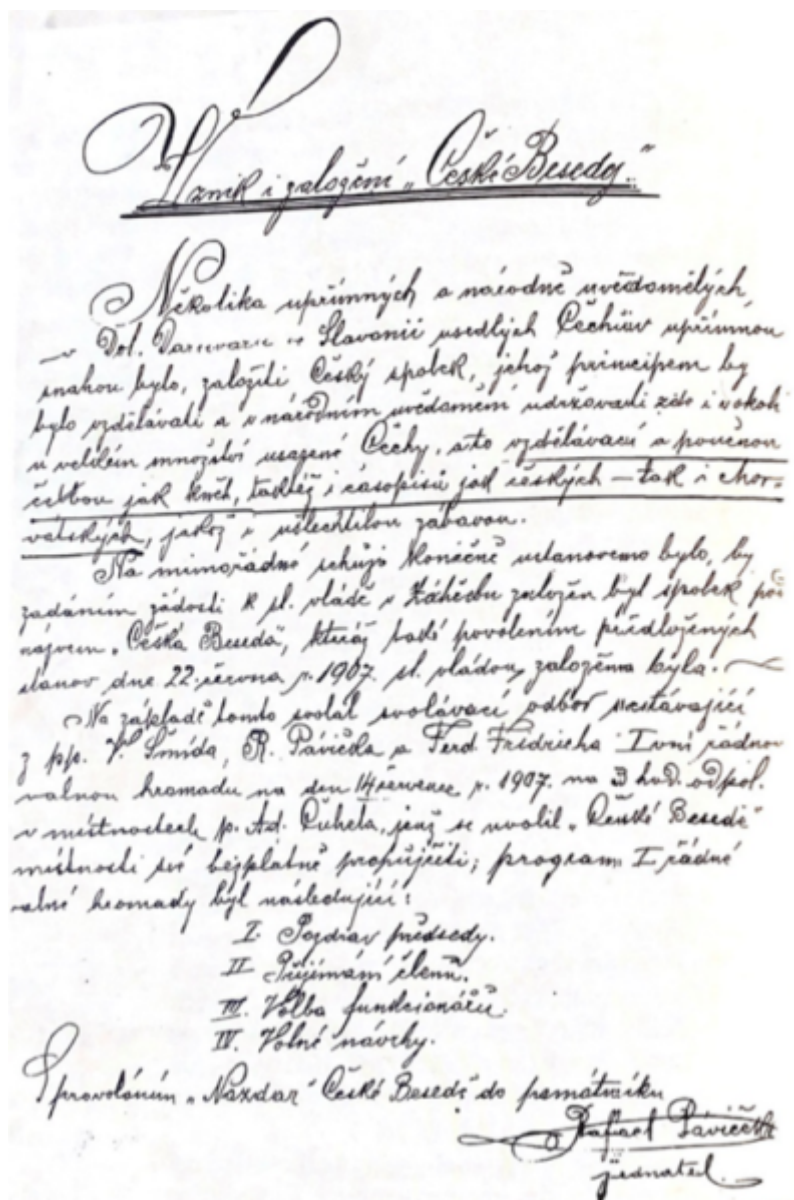 Vznik i založení „České Besedy.“
Několika upřímných a národně uvědomělých,
v Dol. Daruvaru v Slavonii usedlých Čechův upřímnou
snahou bylo, založiti Český spolek, jehož principem by
bylo vzdělávati a v národním uvědomění udržovati zde i v okolí
u velikém množství usazené Čechy, a to vzdělávací a poučnou
četbou jak knih, tadtéž i časopisů jak českých – tak i chor-
vatských, jakož i ušlechtilou zábavou.
Na mimořádné schůzi konečně ustanoveno bylo, by
zadáním žádosti k sl. vládě v Záhřebu založen byl spolek pod
názvem „Česká Beseda“, kteráž také povolením předložených
stanov dne 22. června r. 1907. sl. vládou, založena byla.
Na základě tomto svolal svolávací odbor sestávající
z pp. V. Šmída, R. Pávička a Ferd Fridricha I vní řádnou
valnou hromadu na den 14 července r. 1907. na 3 hod. odpol.
v místnostech p. Ad. Čuheta, jenž se uvolil „České Besedě“
místnosti své bezplatně propůjčiti; program I řádné
valné hromady byl následující:
I. Pozdrav předsedy.
II Přijímání členů.
III. Volba funkcionářů.
IV. Volné návrhy.
S provoláním „Nazdar“ České Besedě do památníku
Rafael Pávička
jednatel.